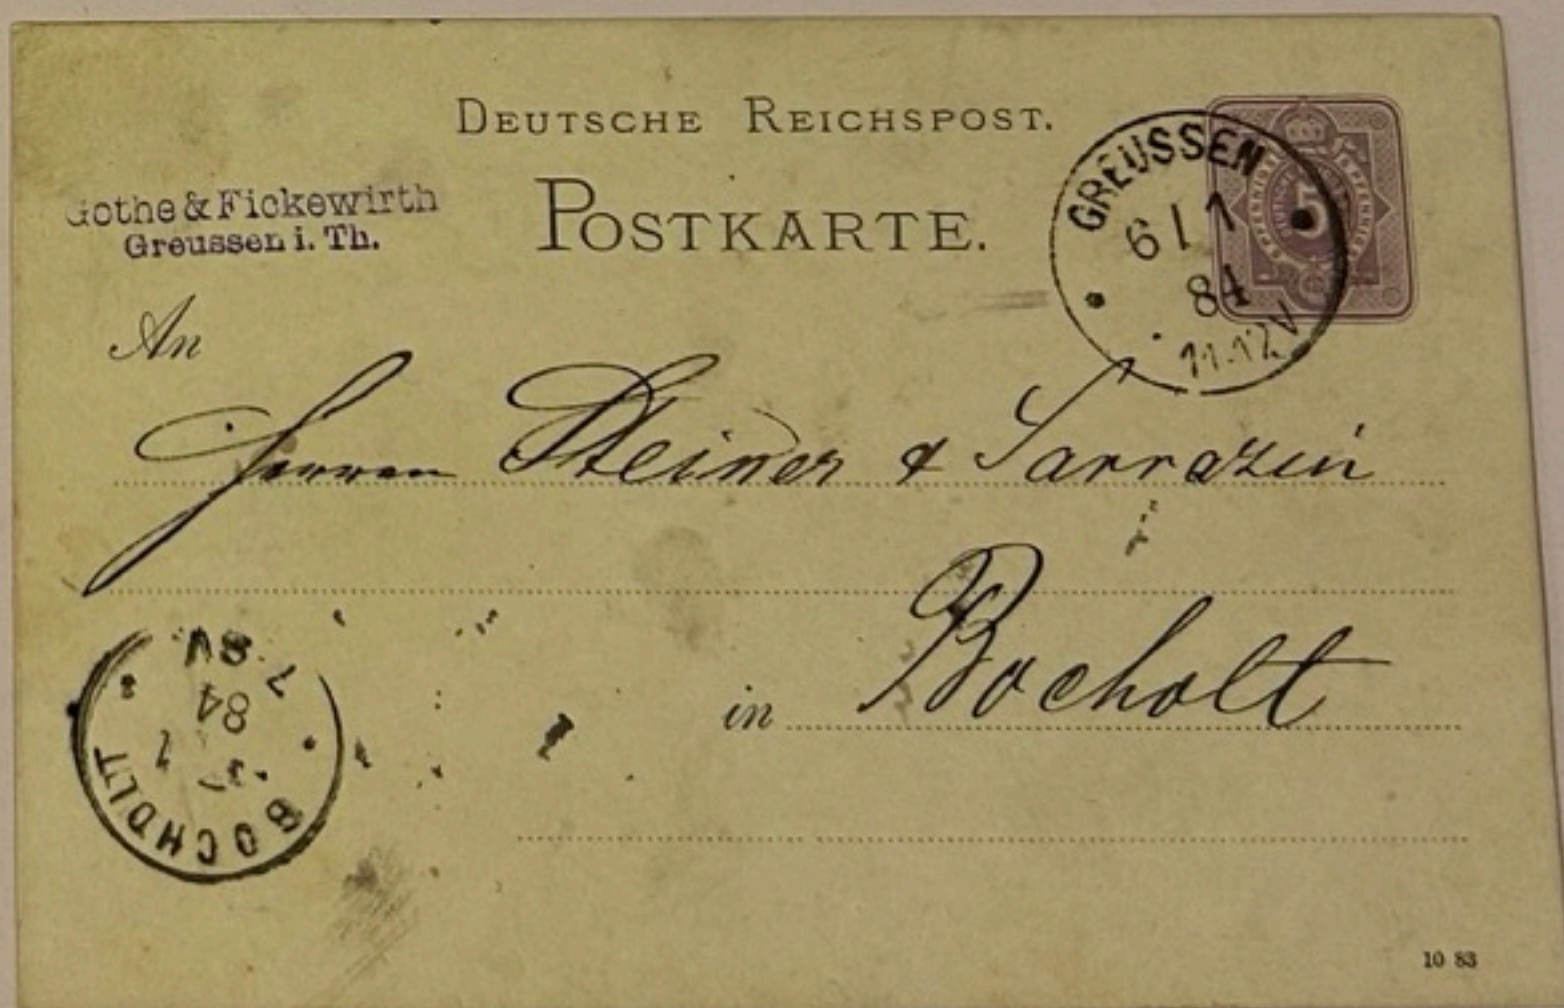 DEUTSCHE REICHSPOST.
POSTKARTE.
Gothe & Fickewirth
Greussen i. Th.
GREUSSEN
6 1 1
84
11-12V
5
An
Herren Steiner & Sarrazin
in Bocholt
BOCHOLT
1
84
7-8V
10 83